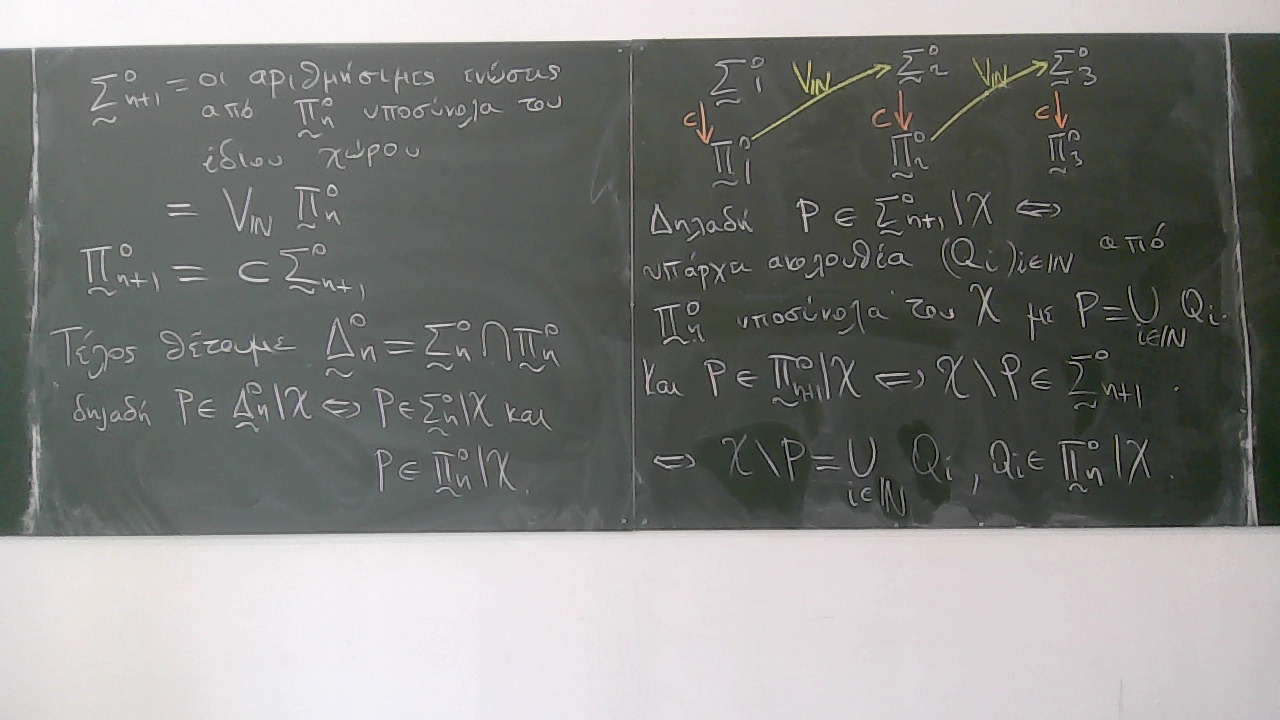 Σ̰⁰ₙ₊₁ = οι αριθμήσιμες ενώσεις
από Π̰⁰ₙ υποσύνολα του
ίδιου χώρου
= V_IN Π̰⁰ₙ
Π̰⁰ₙ₊₁ = c Σ̰⁰ₙ₊₁
Τέλος θέτουμε Δ̰⁰ₙ = Σ̰⁰ₙ ∩ Π̰⁰ₙ
δηλαδή P ∈ Δ̰⁰ₙ|X ⇔ P ∈ Σ̰⁰ₙ|X και
P ∈ Π̰⁰ₙ|X.
Σ̰⁰₁ V_IN Σ̰⁰₂ V_IN Σ̰⁰₃
c c c
Π̰⁰₁ Π̰⁰₂ Π̰⁰₃
Δηλαδή P ∈ Σ̰⁰ₙ₊₁|X ⇔
υπάρχει ακολουθία (Qᵢ)ᵢ∈ℕ από
Π̰⁰ₙ υποσύνολα του X με P = ∪ᵢ∈ℕ Qᵢ.
Και P ∈ Π̰⁰ₙ₊₁|X ⇔ X \ P ∈ Σ̰⁰ₙ₊₁.
⇔ X \ P = ∪ᵢ∈ℕ Qᵢ, Qᵢ ∈ Π̰⁰ₙ|X.